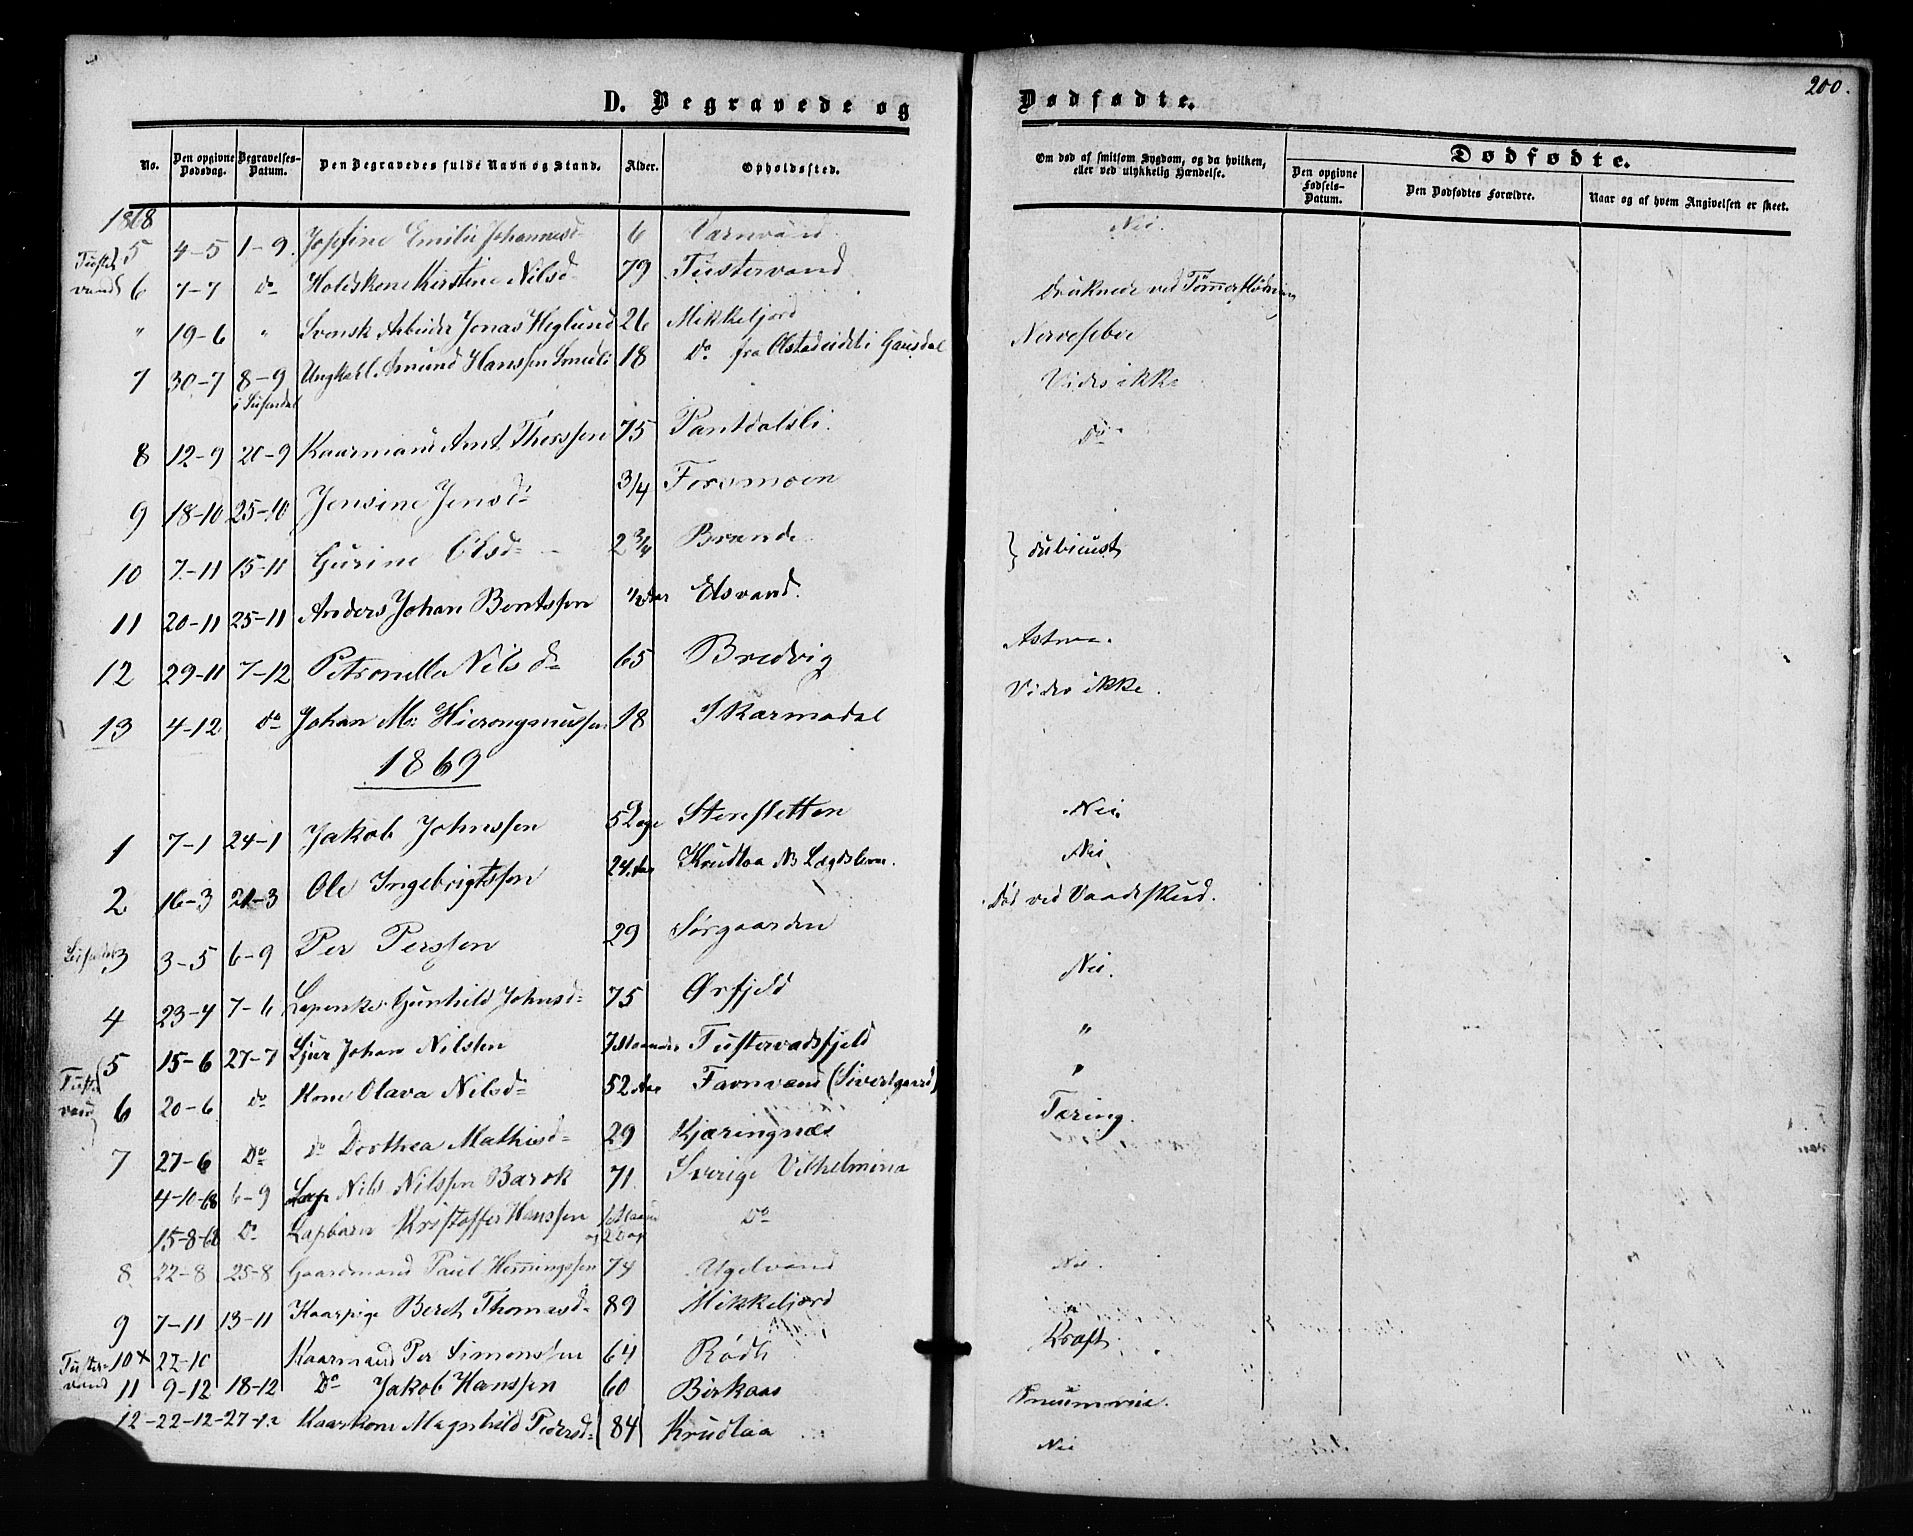 200.
D. Begravede og Dødfødte.
No. Den opgivne Dødsdag. Begravelses-Datum. Den Begravedes fulde Navn og Stand. Alder. Opholdssted. Om død af smitsom Sygdom, og da hvilken, eller ved ulykkelig Hændelse. Dødfødte.
Den opgivne Fødsels-Datum. Den Dødfødtes Forældre. Naar og af hvem Angivelsen er skeet.
1868
5 4-5 1-9 Josefine Emilie Johannesd 6 Nei.
Tuster vand 6 7-7 Do Kirstine Nilsd 79 Tustervand
" 19-6 " Svensk Arbeider Jonas Heglund 26 Mikkeljord Druknede ved Tømmerflødning
7 30-7 8-9 Ungkarl Amund Hanssen 18 Do fra i Gausdal Nervefeber
i Susendal Vides ikke
8 12-9 20-9 Kaarmand Arnt Thorssen 75 Pantdalsli. Do
9 18-10 25-10 Jensine Jensd 3/4 Forsmoen
10 7-11 15-11 Gurine Olsd 2 3/4 Brende } dubieust
11 20-11 25-11 Anders Johan Bentssen 1/2 Aar Elsvand.
12 29-11 7-12 Petronella Nilsd 65 Bredvig Astma.
13 4-12 Do Johan M. Hieronymussen 18 Skarmodal Vides ikke.
1869
1 7-1 24-1 Jakob Johnssen 5 Stensletten Nei.
2 16-3 21-3 Ole Ingebrigtssen 24 Aar Krudtaa NB Lægdslem. Nei
3 3-5 6-9 Per Perssen 29 Sørgaarden Død ved Vaadeskud.
4 23-4 7-6 Gunhild Johnsd 75 Ørfjeld Nei.
5 15-6 27-7 Sjur Johan Nilssen 7 Maaneder Tustervadsfjeld "
Tuster vand 6 20-6 Do Kone Olava Nilsd 52 Aar Favnvand (Sivertgaard) "
7 27-6 Do Do Dorthea Mathisd 29 Kjæringnæs Tæring.
4-10-68 6-9 Lap Nils Nilssen Barok 71 Sverige Vilhelmina
15-8-68 Do Lapbarn Kristoffer Hanssen og 2 Dage Do
8 22-8 25-8 Gaardmand Paul Henningssen 74 Ugelvand Nei.
9 7-11 13-11 Kaarpige Beret Thomasd 89 Mikkeljord "
Tuster- vand 10 + 22-10 Kaarmand Per Simonssen 64 Rødli Kræft
11 9-12 18-12 Do Jakob Hanssen 60 Birkaas Pneumonie.
12 22-12 27-12 Kaarkone Magnhild Pedersd 84 Krudtaa Nei